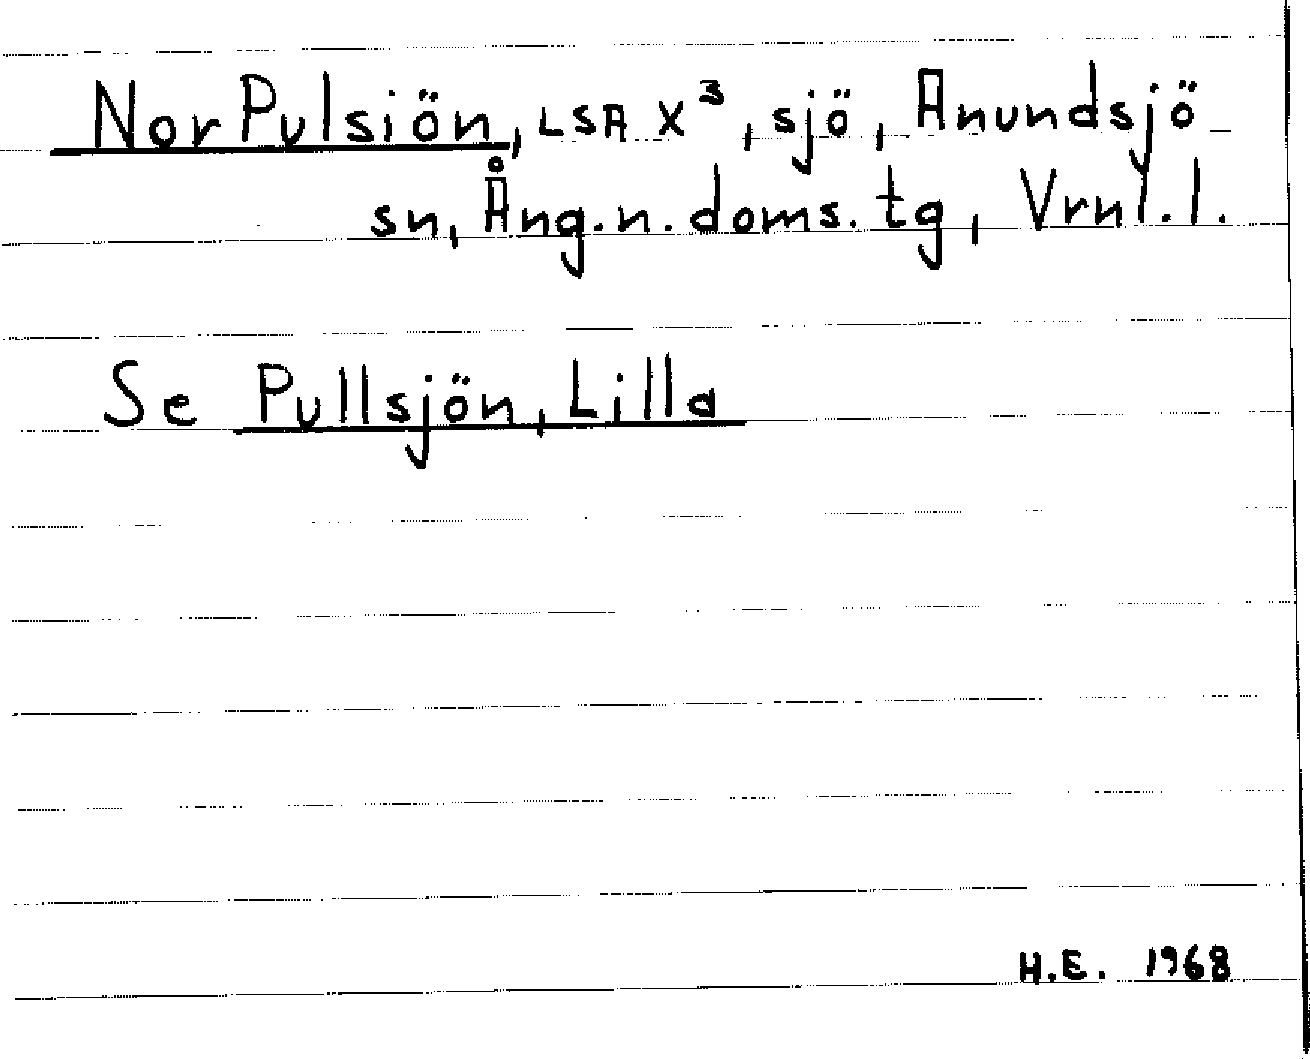 Nor Pulsiön, LSA X³, sjö, Anundsjö
sn, Ång.n.doms.tg, Vrnl.l.
Se Pullsjön, Lilla
H.E. 1968